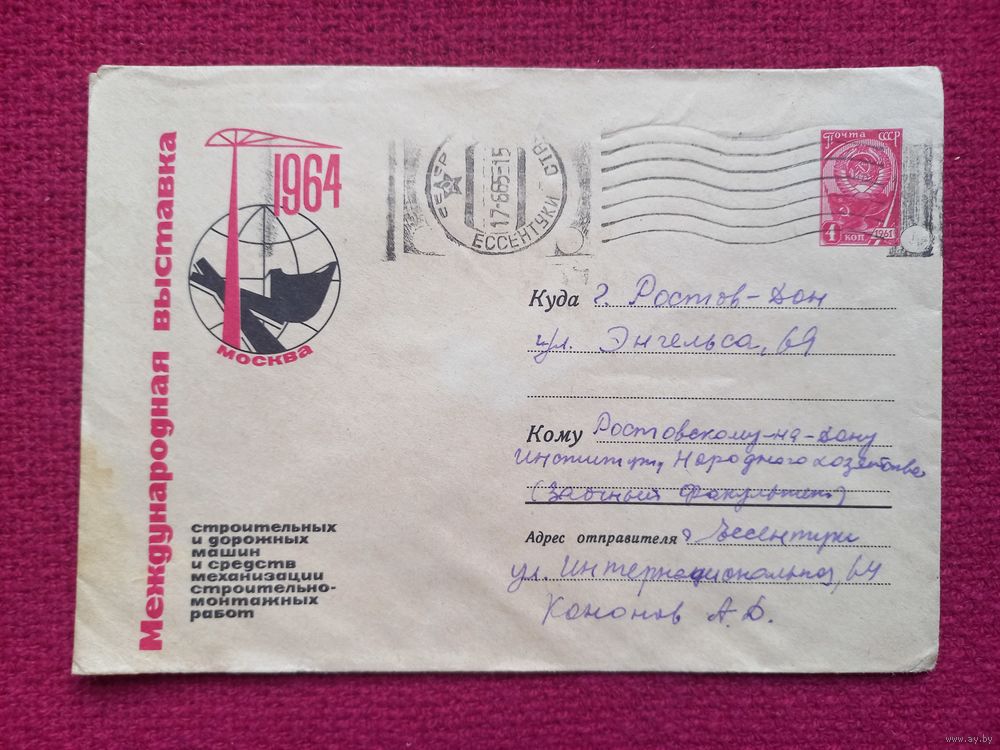 Международная выставка
1964
МОСКВА
строительных
и дорожных
машин
и средств
механизации
строительно-
монтажных
работ
17-6 65-15
ЕССЕНТУКИ СТА
Почта СССР
4 КОП 1961
Куда г. Ростов-Дон
ул. Энгельса, 69
Кому Ростовскому-на-Дону
Институту Народного хозяйства
(Заочный факультет)
Адрес отправителя г Ессентуки
ул. Интернациональная, 64
Кононов А.Д.
www.ay.by